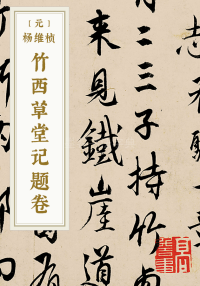 〔元〕
杨维桢
竹西草堂记题卷
二三子持竹
来見鐵崖道